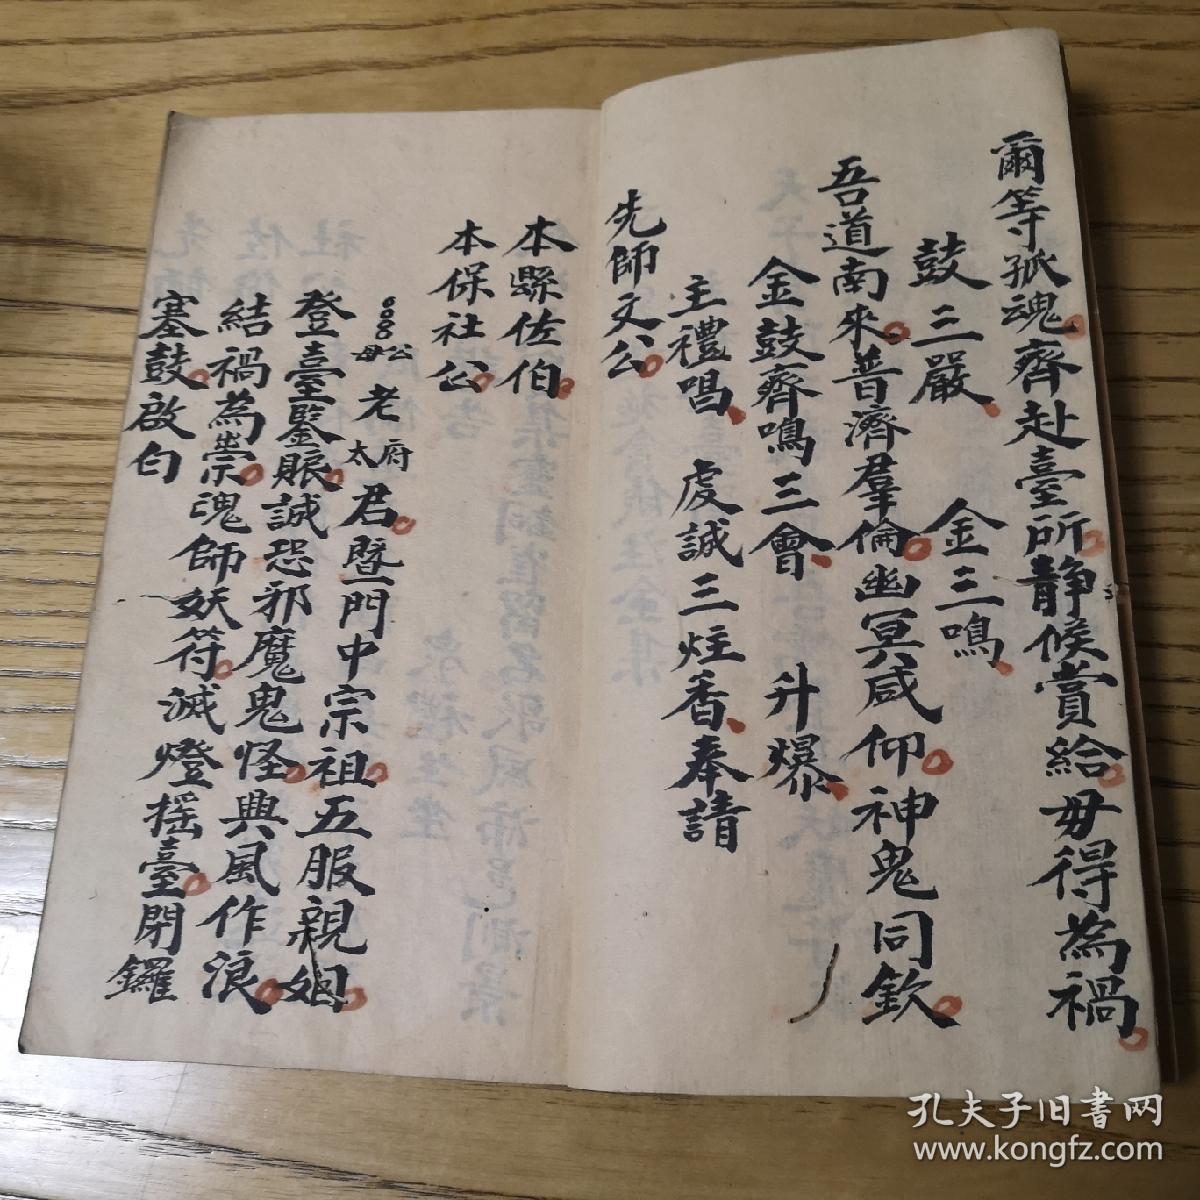 爾等孤魂齊赴臺所静候賞給毋得為禍
鼓三嚴 金三鳴
吾道南來普濟羣倫幽冥咸仰神鬼同欽
金鼓齊鳴三會 升爆
主禮唱 虔誠三炷香奉請
先師文公
本縣佐伯
本保社公
公母 老府太君暨一門中宗祖五服親姻
登臺鑒賬誠恐邪魔鬼怪興風作浪
結禍為祟魂師妖符滅燈摇臺閉鑼
塞鼓啟白
孔夫子旧书网
www.kongfz.com